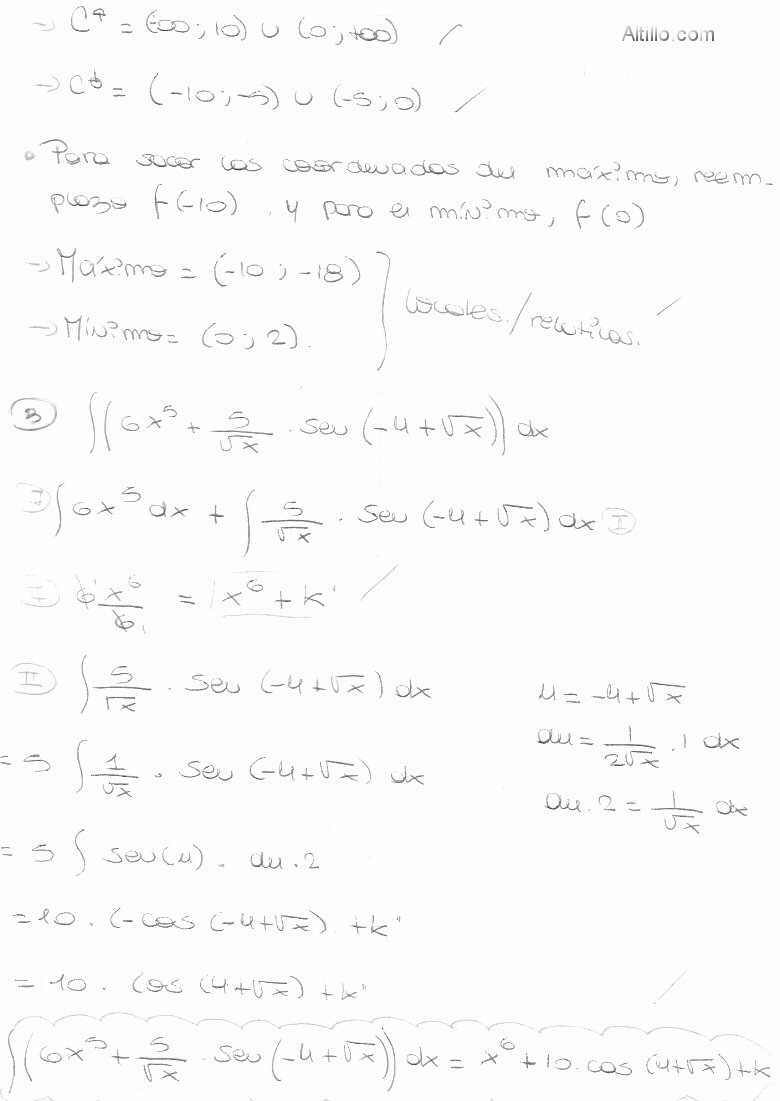 → C↑ = (-∞; 10) ∪ (0; +∞) / Altillo.com
→ C↓ = (-10; -5) ∪ (-5; 0) /
• Para sacar las coordenadas del máximo, reem-
plazo f(-10), y para el mínimo, f(0)
→ Máximo = (-10; -18)
→ Mínimo = (0; 2). } locales./relativos. /
③ ∫(6x⁵ + 5/√x . sen (-4+√x)) dx
I ∫6x⁵ dx + ∫ 5/√x . sen (-4+√x) dx I
I 6x⁶/6 = x⁶ + k' /
II ∫ 5/√x . sen (-4+√x) dx u = -4+√x
= 5 ∫ 1/√x . sen (-4+√x) dx du = 1/2√x . 1 dx
du . 2 = 1/√x dx
= 5 ∫ sen(u) . du . 2
= 10 . (-cos (-4+√x) + k'
= 10 . cos (4+√x) + k' /
∫(6x⁵ + 5/√x . sen (-4+√x)) dx = x⁶ + 10 . cos (4+√x) + k